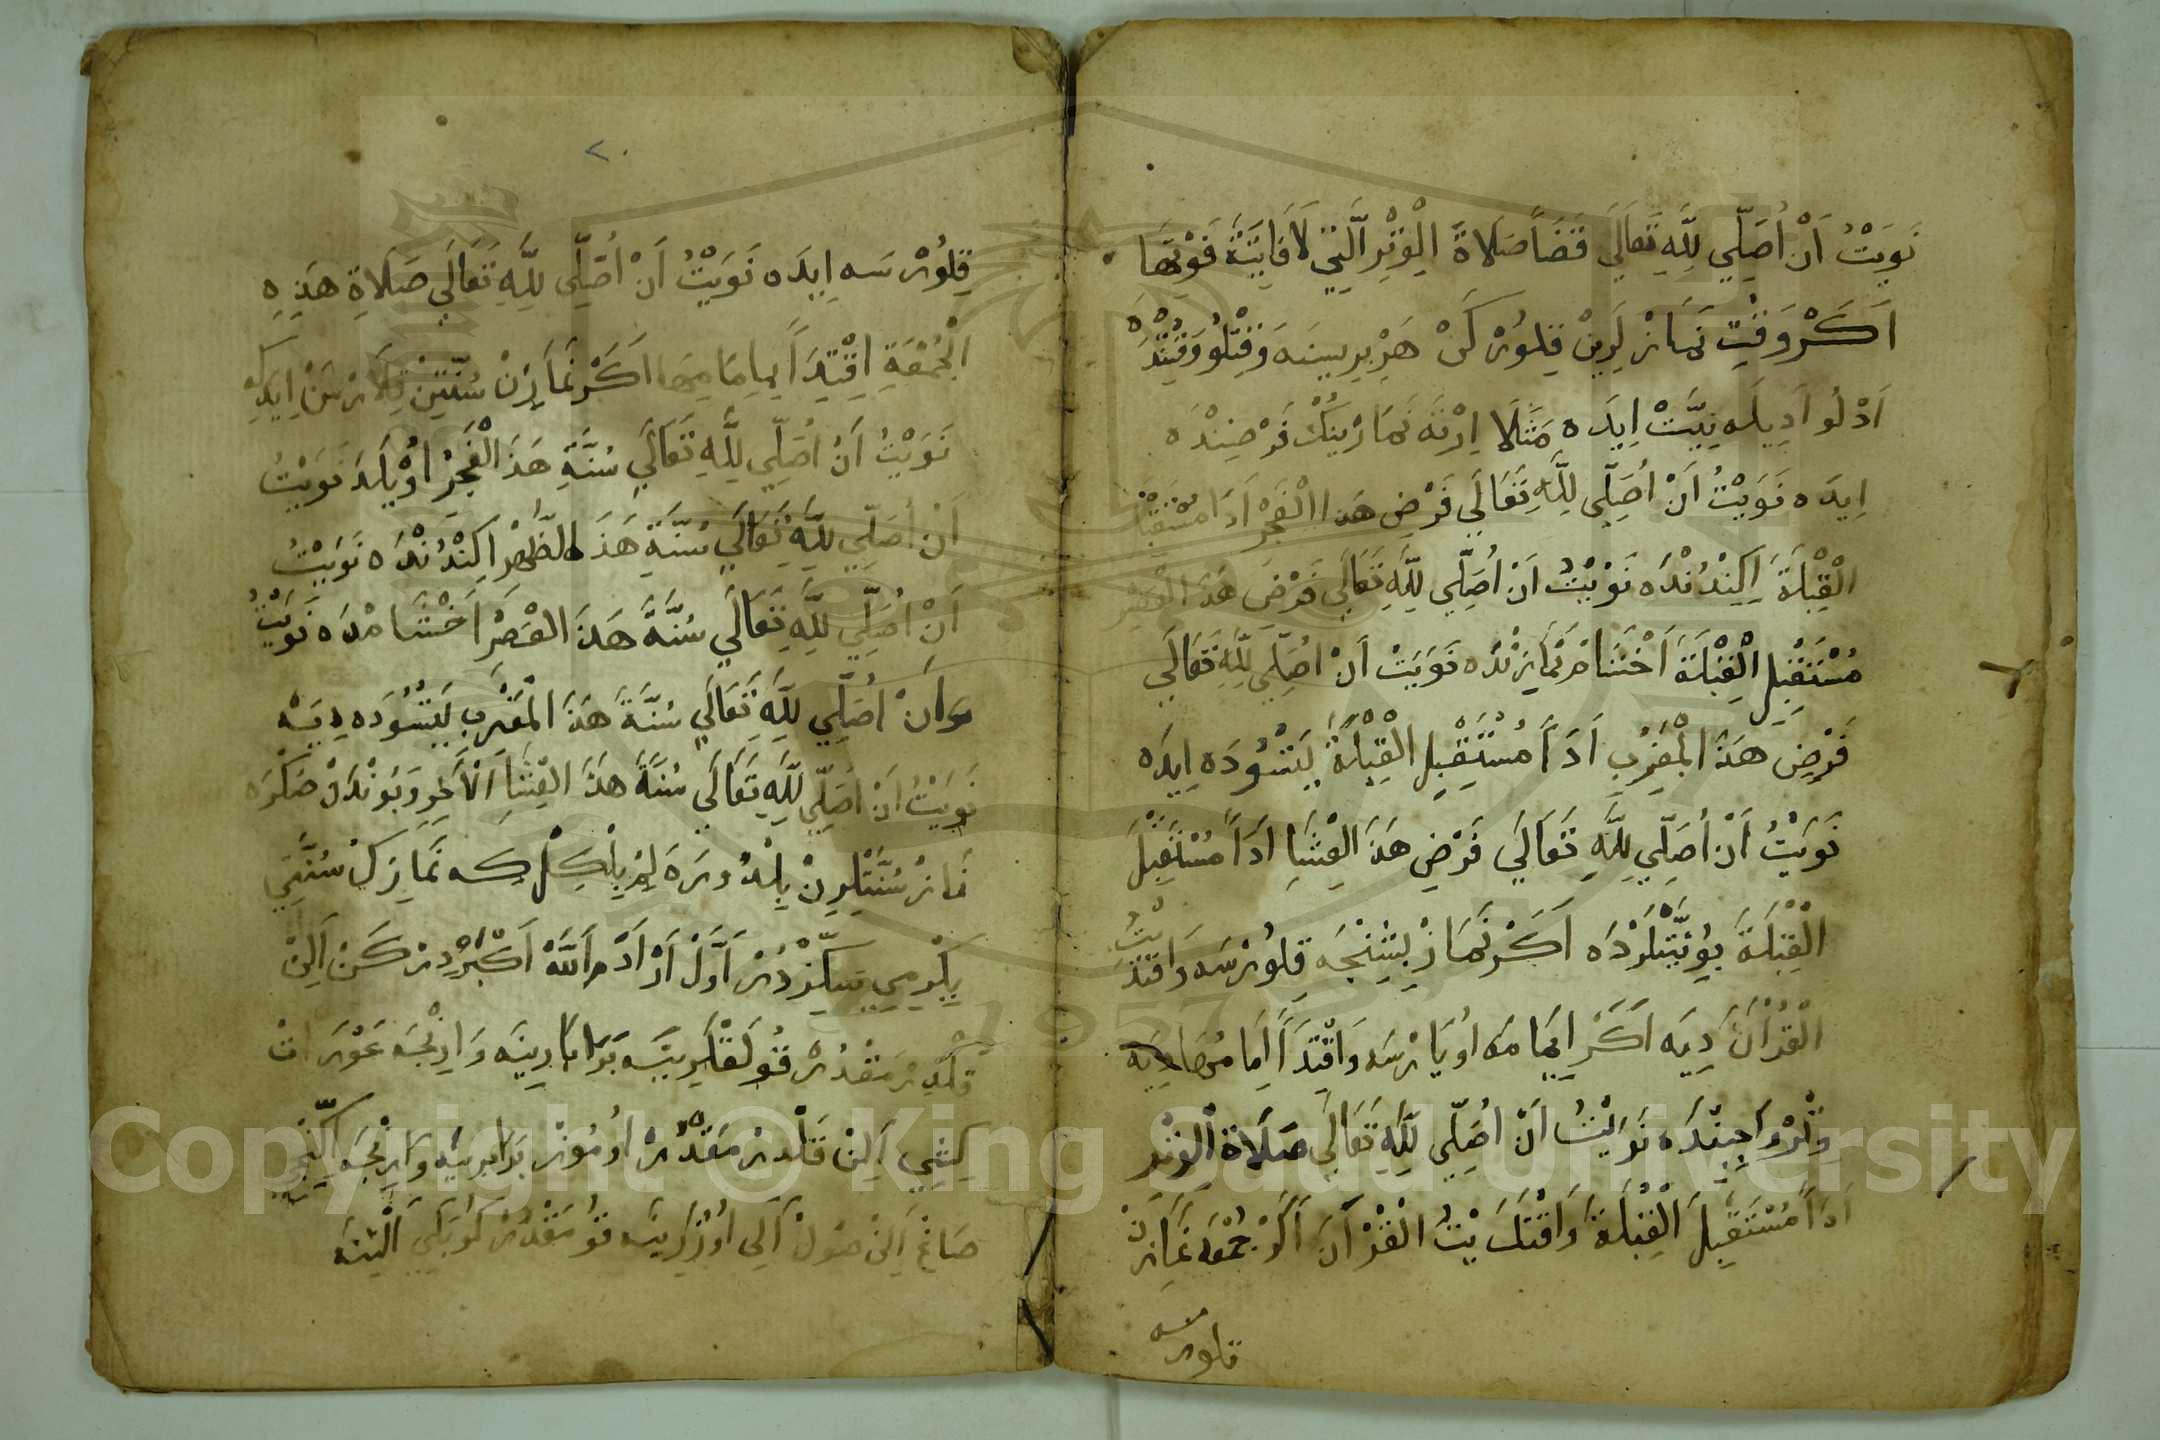 نَوَيْتُ اَنْ اُصَلِّي لِلَّهِ تَعَالَي قَضَاً صَلَاةَ الْوِتْرِ الَّتِي لَا فَايِتَةً فَوْتِهَا
اَكَرْ وَقْتِ نَمَازْ لَرِينْ قِلُورْ كَنْ هَرْ بِرِيسِنَه وَقْتْلُو وَقْتِنْدَه
اَدْلُو اَدِيلَه نِيَّتْ اِيدَه مَثَلَا اِرْتَه نَمَازِينُكْ فَرْضِنْدَه
اِيدَه نَوَيْتُ اَنْ اُصَلِّي لِلَّهِ تَعَالَي فَرْضِ هَذَا الْفَجْرِ اَدَا مُسْتَقْبِلَ
الْقِبْلَةَ اِكِنْدُنْدَه نَوَيْتُ اَنْ اُصَلِّي لِلَّهِ تَعَالَي فَرْضِ هَذَ الْعَصْرِ
مُسْتَقْبِلِ الْقِبْلَةَ اَخْشَامْ نَمَازِنْدَه نَوَيَتْ اَنْ اُصَلِّي لِلَّهِ تَعَالَي
فَرْضِ هَذَ الْمَغْرِبِ اَدَاً مُسْتَقْبِلِ الْقِبْلَةَ يَتْسُودَه اِيدَه
نَوَيْتُ اَنْ اُصَلِّي لِلَّهِ تَعَالَي فَرْضِ هَذَ الْعِشَاِ اَدَاً مُسْتَقْبِلَ
الْقِبْلَةَ بُو نِيَّتْلَرْدَه اَكَرْ نَمَازْ يَلْنِجَه قِلُورْسَه وَاقْتَدَيْتُ
الْقُرْاَنَ دِيَه اَكَرْ اِيمَامَه اُويَارْسَه وَاقْتِدَاً اِمَامُهَا دِيَه
وِتْرِ وَاجِبِنْدَه نَوَايْتُ اَنْ اُصَلِّي لِلَّهِ تَعَالَي صَلَاةَ الْوِتْرِ
اَدَاً مُسْتَقْبِلَ الْقِبْلَةَ وَاقْتَدَيْتُ الْقُرْاَنَ اَكَرْ جُمْعَه نَمَازِنْ
قلورسه
٢٠
قِلُورْسَه اِيدَه نَوَيْتُ اَنْ اُصَلِّي لِلَّهِ تَعَالَي صَلَاةِ هَذِهِ
الْجُمْعَةِ اِقْتِدَاً بِاِمَامِهَا اَكَرْ نَمَازِنْ سُنَّتِنْ قِلَارْسَنْ اِيدَكِه
نَوَيْتُ اَنْ اُصَلِّي لِلَّهِ تَعَالَي سُنَّةِ هَذَ الْفَجْرِ اُوْيلَدَ نَوَيْتُ
اَنْ اُصَلِّي لِلَّهِ تَعَالَي سُنَّةِ هَذَه الظُّهْرِ اِكِنْدُنْدَه نَوَيْتُ
اَنْ اُصَلِّي لِلَّهِ تَعَالَي سُنَّةَ هَذَ الْعَصْرِ اَخْشَامْدَه نَوَيْتُ
اَنْ اُصَلِّي لِلَّهِ تَعَالَي سُنَّةَ هَذَ الْمَغْرِبِ يَتْسُودَه دِيَه
نَوَيْتُ اَنْ اُصَلِّي لِلَّهِ تَعَالَي سُنَّةَ هَذَ الْعِشَاِ الْاَخِرِ وَبُونْدَنْ صَكْرَه
نَمَازْ سُنَّتْلَرِينْ بِلْدُورَه لِمْ بِلْكِلْ كِه نَمَازِكْ سُنَّتِي
يِكِرْمِي سَكِّزْدُرْ اَوَّلْ اَرْ اَدَمْ اَللَّهْ اَكْبَرْ دِرْكَنْ اَلِنْ
قَلْدِرْمَقْدُرْ قُولَقْلَرِينَه بَرَابَارِينَه وَارِنْجَه عَوْرَاتْ
كِشِي اَلِنْ قَلْدِرْمَقْدُرْ اوُمُوزْ بَرَابَرِينَه وَارِنْجَه اِكِنْجِي
صَاغْ اَلِنْ صُولْ اَلِي اُوزَرِينَه قُومَقْدُرْ كُوبَكِي اَلْتِنَه
Copyright © King Saud University
1957